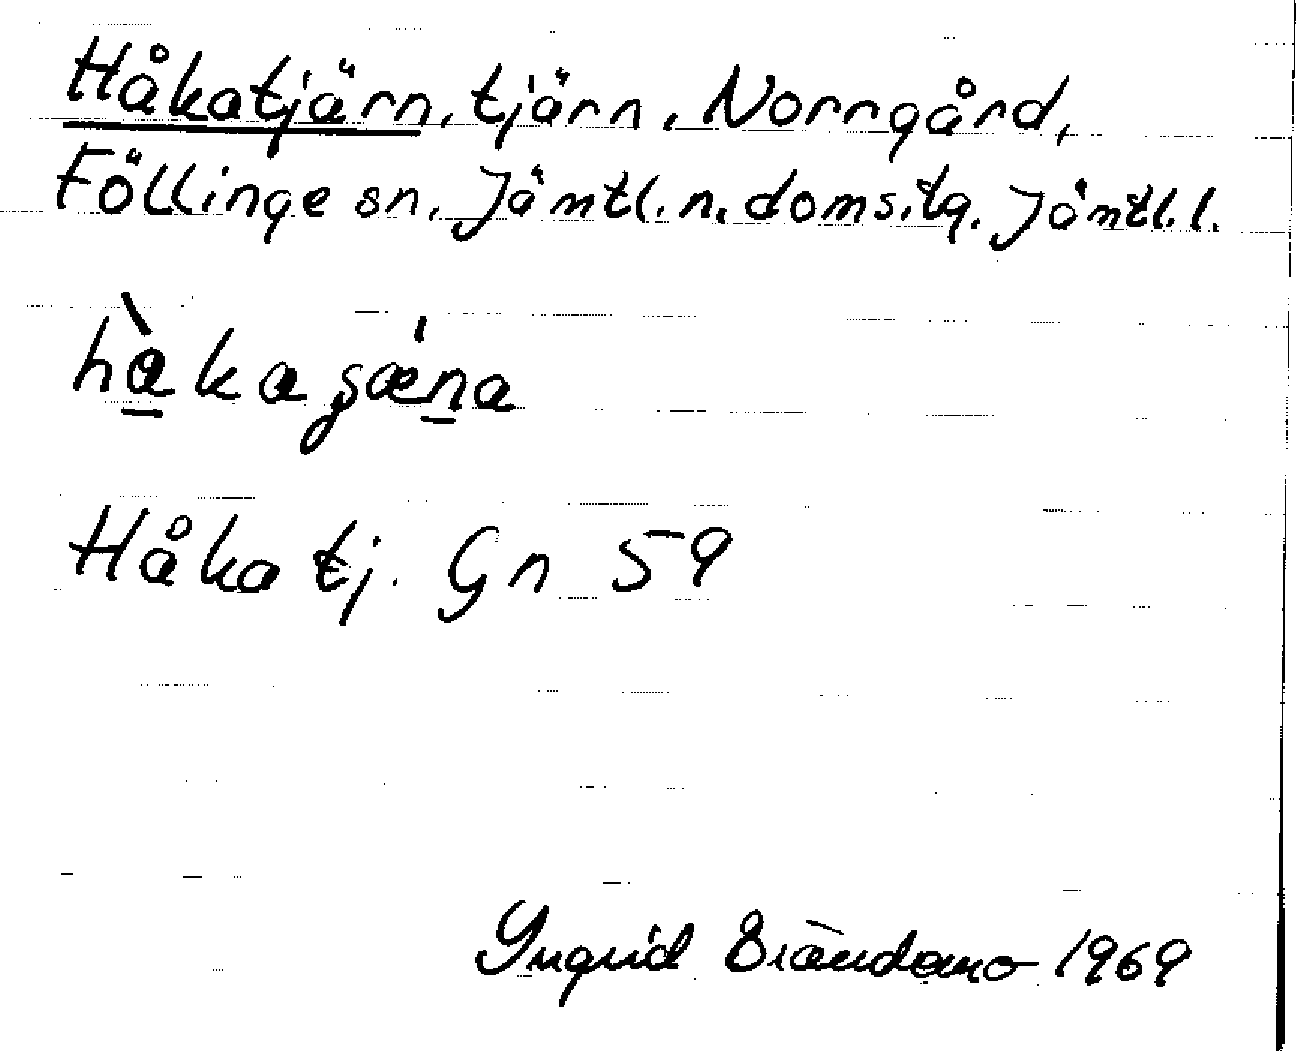 Håkatjärn, tjärn, Norrgård,
Föllinge sn, Jämtl. n. doms. tg. Jämtl. l.
Håka tj. Gn 59
Ingrid 1969